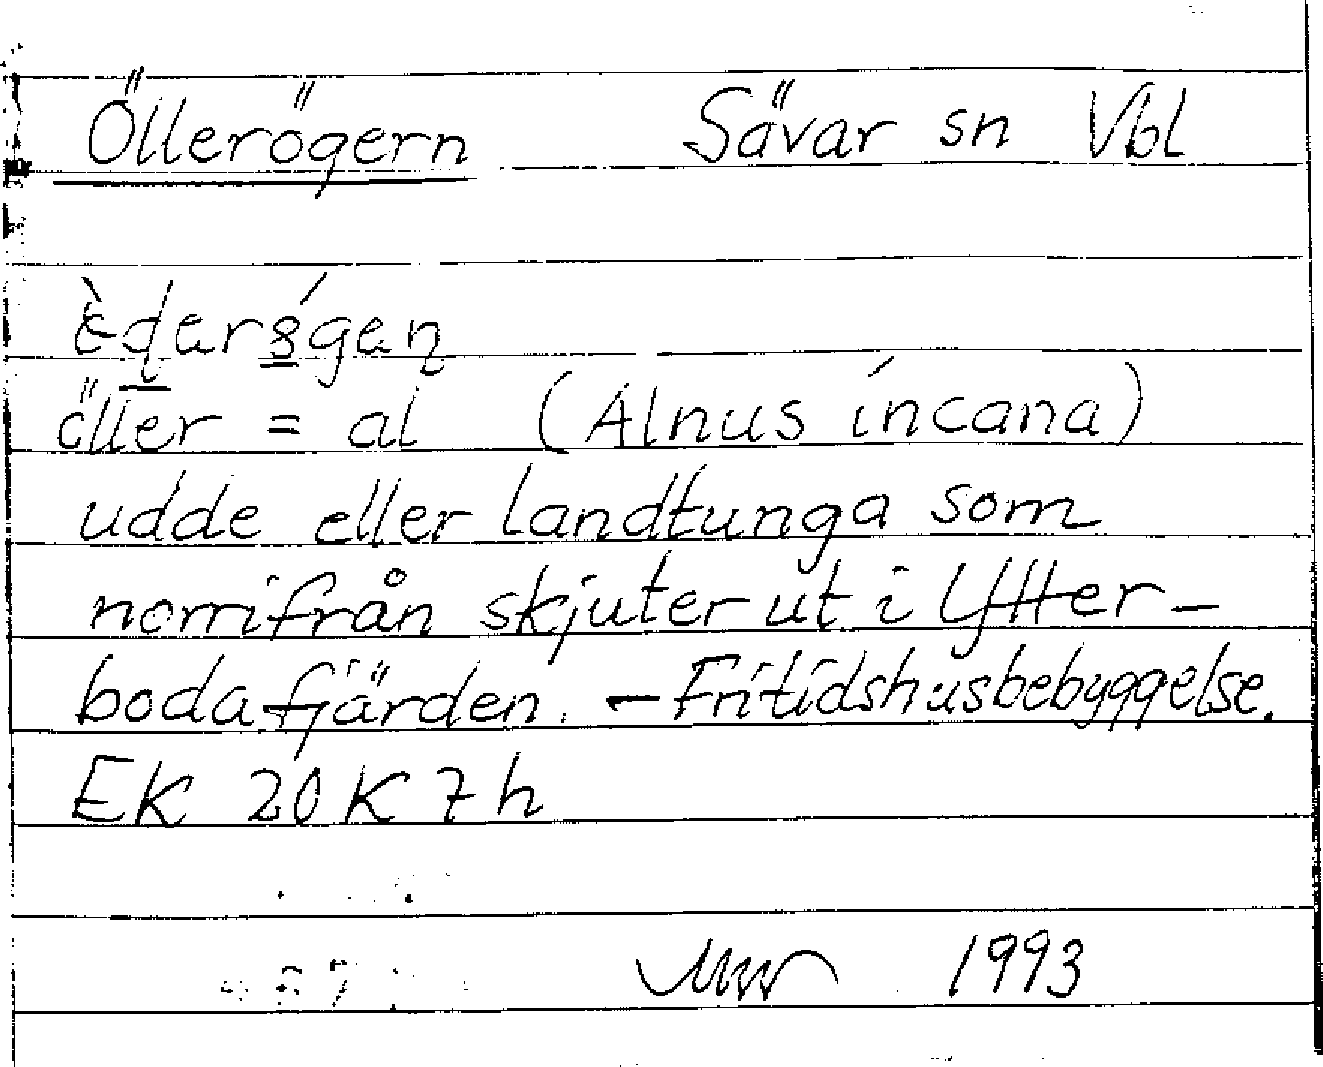 Öllerögern Sävar sn Vbl
öller = al (Alnus incana)
udde eller landtunga som
norrifrån skjuter ut i Ytter-
bodafjärden. - Fritidshusbebyggelse.
EK 20K 7h
1993